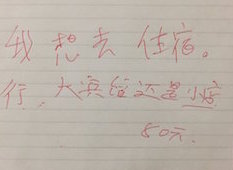 我想去住宿。
行，大宾馆还是小店
80元.